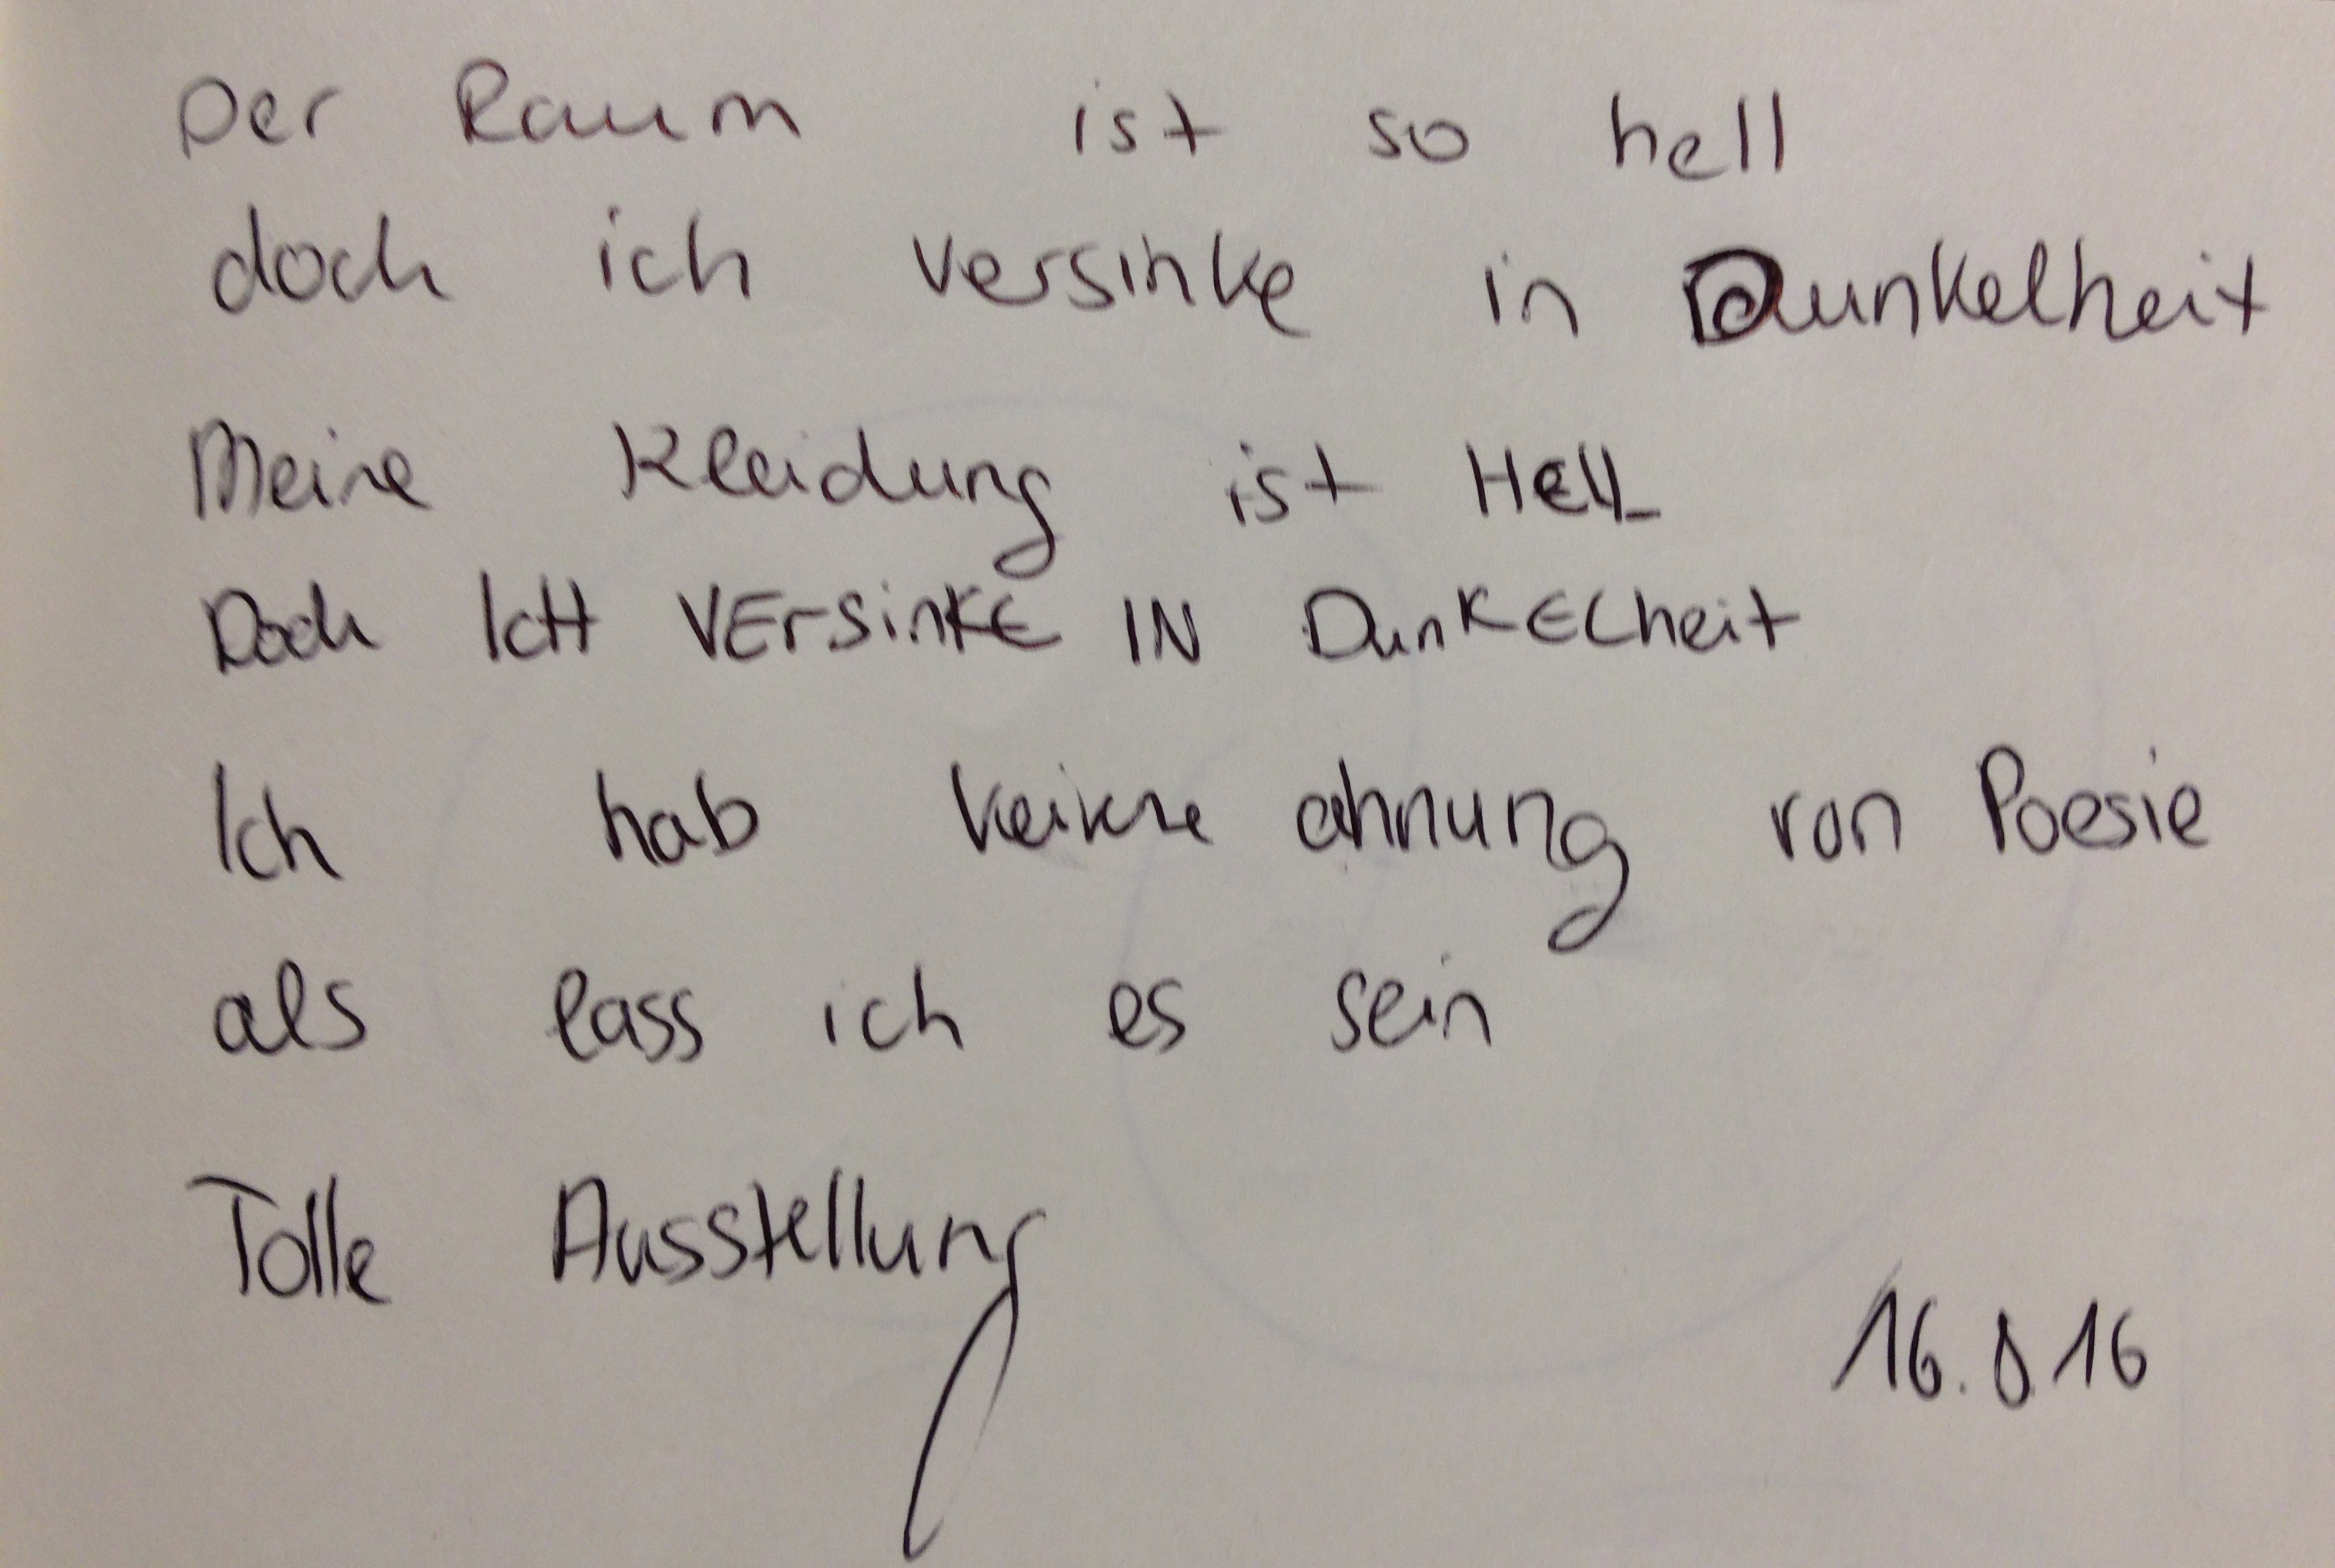 Der Raum ist so hell
doch ich versinke in Dunkelheit
Meine Kleidung ist HELL
Doch IcH VErsinKE IN DunKELheit
Ich hab keine ahnung von Poesie
als lass ich es sein
Tolle Ausstellung
16.8.16